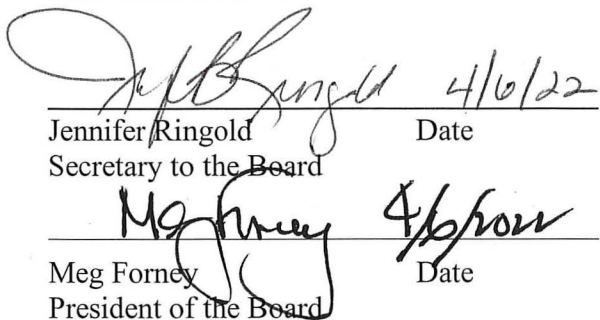 JnfBRingold 4/6/22
Jennifer Ringold Date
Secretary to the Board
Meg Forney 4/6/2022
Meg Forney Date
President of the Board